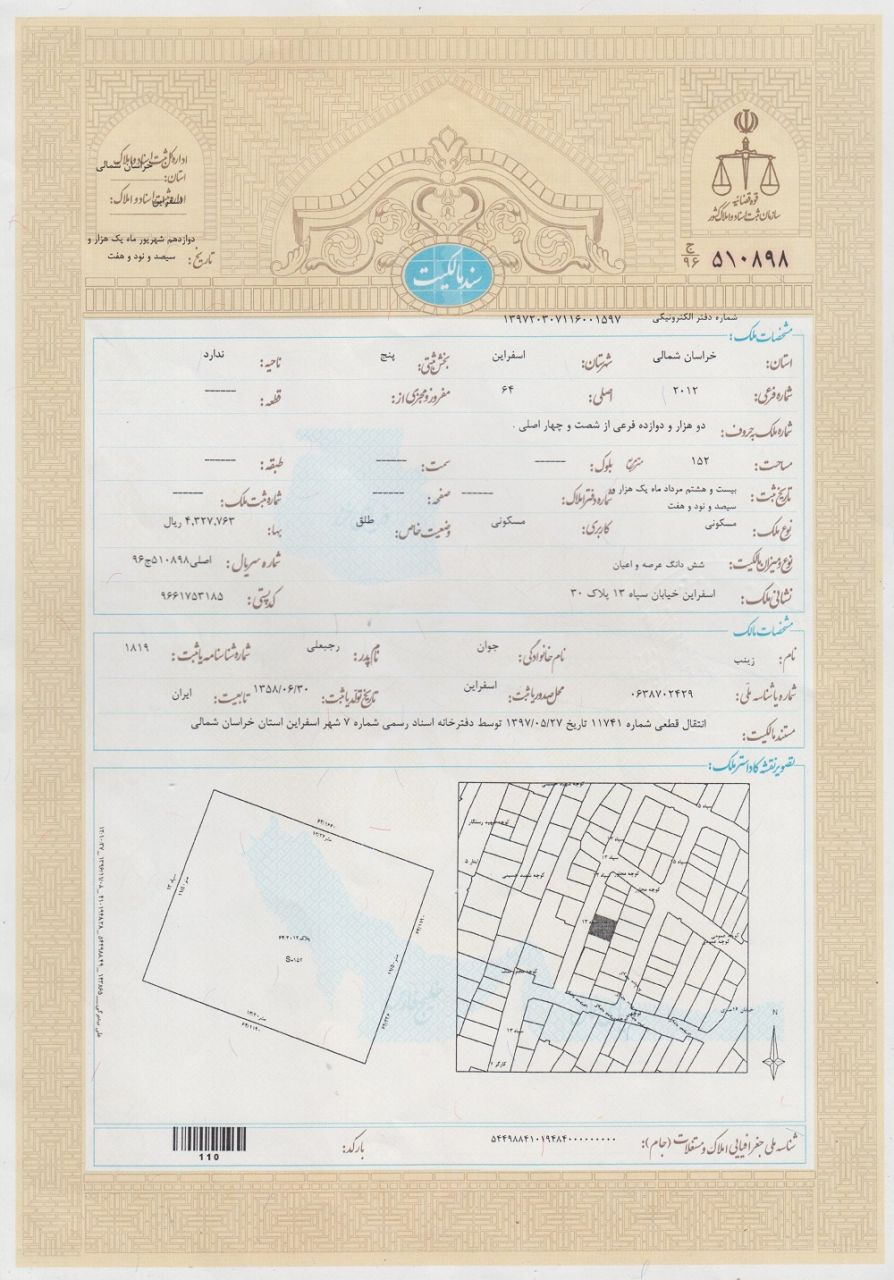 قوه قضائیه
سازمان ثبت اسناد و املاک کشور
۵۱۰۸۹۸ ج ۹۶
اداره کل ثبت اسناد و املاک
استان: خراسان شمالی
اداره ثبت اسناد و املاک: اسفراین
تاریخ: دوازدهم شهریور ماه یک هزار و سیصد و نود و هفت
سند مالکیت
شماره دفتر الکترونیکی ۱۳۹۷۲۰۳۰۷۱۱۶۰۰۱۵۹۷
مشخصات ملک:
استان: خراسان شمالی شهرستان: اسفراین بخش ثبتی: پنج ناحیه: ندارد
شماره فرعی: ۲۰۱۲ اصلی: ۶۴ مفروز و مجزی از: قطعه: ------
شماره ملک به حروف: دو هزار و دوازده فرعی از شصت و چهار اصلی .
مساحت: ۱۵۲ مترمربع بلوک: ------ سمت: ------ طبقه: ------
تاریخ ثبت: بیست و هشتم مرداد ماه یک هزار و سیصد و نود و هفت شماره دفتر املاک: ------ صفحه: ------ شماره ثبت ملک: ------
نوع ملک: مسکونی کاربری: مسکونی وضعیت خاص: طلق بها: ۴,۳۲۷,۷۶۳ ریال
نوع و میزان مالکیت: شش دانگ عرصه و اعیان شماره سریال: اصلی۵۱۰۸۹۸ج۹۶
نشانی ملک: اسفراین خیابان سپاه ۱۳ پلاک ۳۰ کد پستی: ۹۶۶۱۷۵۳۱۸۵
مشخصات مالک
نام: زینب نام خانوادگی: جوان نام پدر: رجبعلی شماره شناسنامه یا ثبت: ۱۸۱۹
شماره یا شناسه ملی: ۰۶۳۸۷۰۲۴۲۹ محل صدور یا ثبت: اسفراین تاریخ تولد یا ثبت: ۱۳۵۸/۰۶/۳۰ تابعیت: ایران
مستند مالکیت: انتقال قطعی شماره ۱۱۷۴۱ تاریخ ۱۳۹۷/۰۵/۲۷ توسط دفترخانه اسناد رسمی شماره ۷ شهر اسفراین استان خراسان شمالی
تصویر نقشه کاداستر ملک:
پلاک ۶۴/۲۰۱۲
S=۱۵۲
سپاه ۱۳
N
شناسه ملی جغرافیایی املاک و مستغلات (جام): ۵۴۴۹۸۸۴۱۰۱۹۴۸۴۰۰۰۰۰۰۰۰۰۰
بارکد:
110